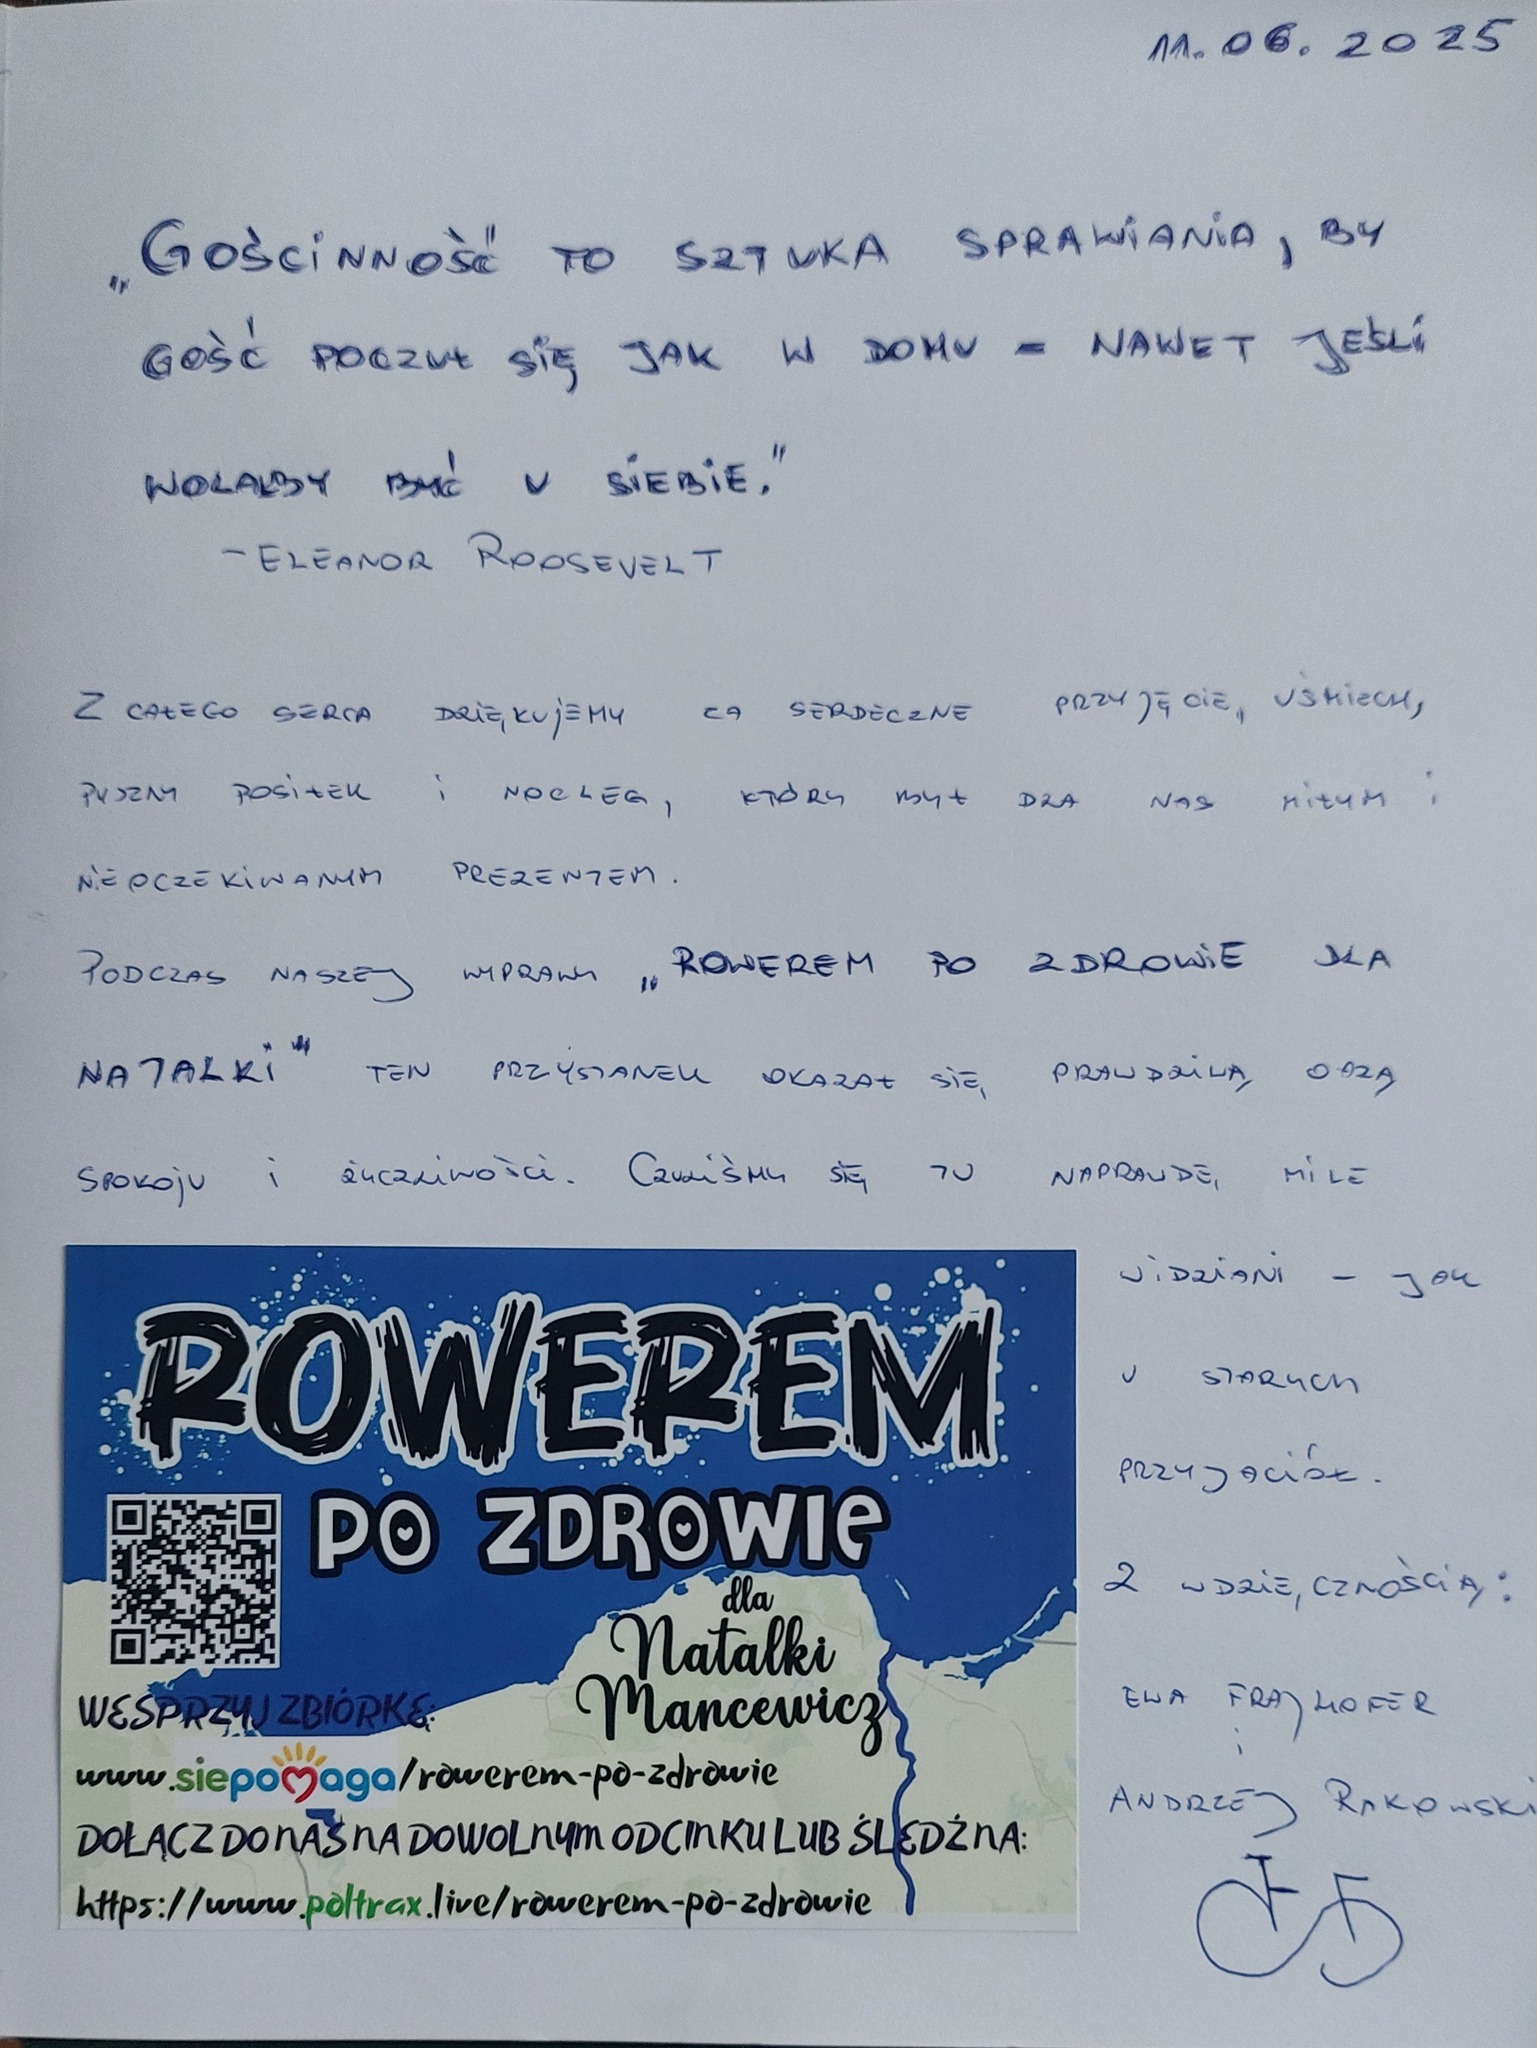 11.06.2025
„Gościnność" to sztuka sprawiania, by
gość poczuł się jak w domu – nawet jeśli
wolałby być u siebie."
– Eleanor Roosevelt
Z całego serca dziękujemy za serdeczne przyjęcie, uśmiech,
pyszny posiłek i nocleg, który był dla nas miłym i
nieoczekiwanym prezentem.
Podczas naszej wyprawy „ROWEREM PO ZDROWIE DLA
NATALKI" ten przystanek okazał się prawdziwą oazą
spokoju i życzliwości. Czuliśmy się tu naprawdę mile
widziani – jak
u starych
przyjaciół.
Z wdzięcznością:
Ewa Frajhofer
i
Andrzej Rakowski
ROWEREM
PO ZDROWIE
dla
Natalki
Mancewicz
WESPRZYJ ZBIÓRKĘ:
www.siepomaga/rowerem-po-zdrowie
DOŁĄCZ DO NAS NA DOWOLNYM ODCINKU LUB ŚLEDŹ NA:
https://www.poltrax.live/rowerem-po-zdrowie